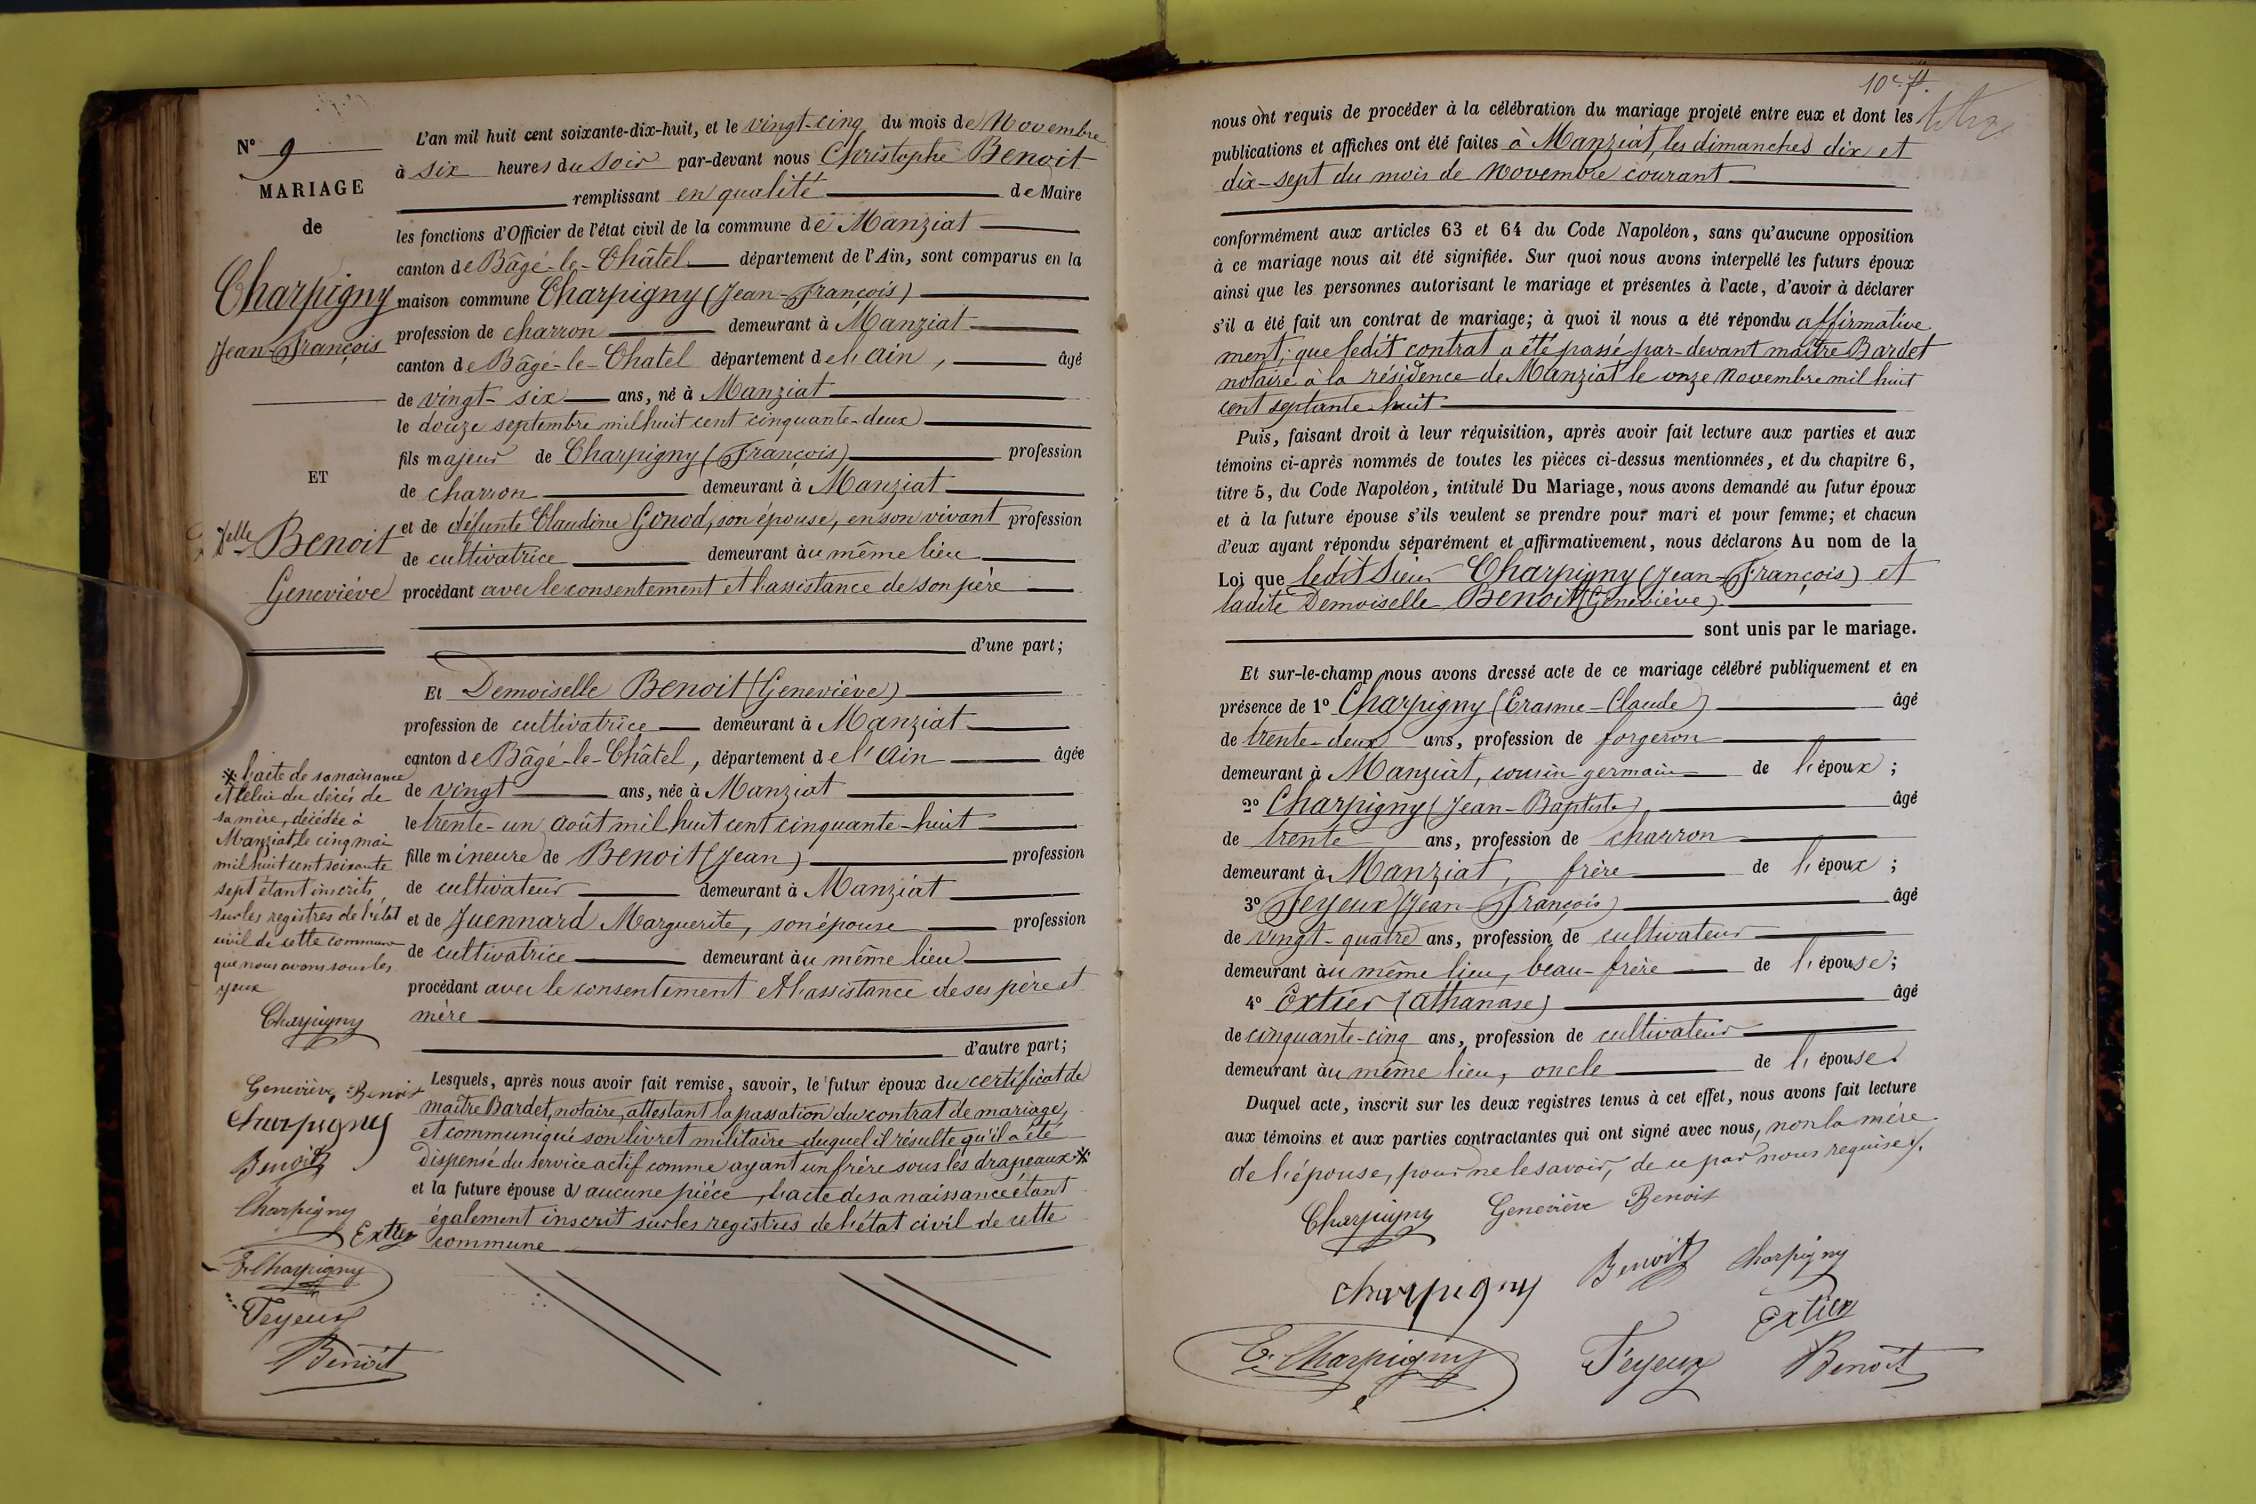 N° 9
MARIAGE
de
Charpigny
Jean-François
ET
Delle Benoit
Geneviève
L'an mil huit cent soixante-dix-huit, et le vingt-cinq du mois de Novembre
à six heures du soir par-devant nous Christophe Benoit
remplissant en qualité de Maire
les fonctions d'Officier de l'état civil de la commune de Manziat
canton de Bâgé-le-Châtel département de l'Ain, sont comparus en la
maison commune Charpigny (Jean-François)
profession de charron demeurant à Manziat
canton de Bâgé-le-Chatel département de l'ain, âgé
de vingt-six ans, né à Manziat
le douze septembre mil huit cent cinquante-deux
fils majeur de Charpigny (François) profession
de charron demeurant à Manziat
et de défunte Claudine Gonod, son épouse, en son vivant profession
de cultivatrice demeurant au même lieu
procédant avec le consentement et l'assistance de son père
d'une part;
Et Demoiselle Benoit (Geneviève)
profession de cultivatrice demeurant à Manziat
canton de Bâgé-le-Châtel, département de l'Ain âgée
de vingt ans, née à Manziat
le trente-un août mil huit cent cinquante-huit
fille mineure de Benoit (Jean) profession
de cultivateur demeurant à Manziat
et de Juennard Marguerite, son épouse profession
de cultivatrice demeurant au même lieu
procédant avec le consentement et l'assistance de ses père et
mère
d'autre part;
Lesquels, après nous avoir fait remise, savoir, le futur époux du certificat de
maître Bardet, notaire, attestant la passation du contrat de mariage,
et communiqué son livret militaire duquel il résulte qu'il a été
dispensé du service actif comme ayant un frère sous les drapeaux *
et la future épouse d'aucune pièce, l'acte de sa naissance étant
également inscrit sur les registres de l'état civil de cette
commune
* l'acte de sa naissance
et celui du décès de
sa mère, décédée à
Manziat, le cinq mai
mil huit cent soixante
sept étant inscrits
sur les registres de l'état
civil de cette commune
que nous avons sous les
yeux
Charpigny
Geneviève Benoit
Charpigny
Benoit
Charpigny
Extier
E. Charpigny
Feyeux
Benoit
10e f.
nous ont requis de procéder à la célébration du mariage projeté entre eux et dont les
publications et affiches ont été faites à Manziat, les dimanches dix et
dix-sept du mois de Novembre courant
conformément aux articles 63 et 64 du Code Napoléon, sans qu'aucune opposition
à ce mariage nous ait été signifiée. Sur quoi nous avons interpellé les futurs époux
ainsi que les personnes autorisant le mariage et présentes à l'acte, d'avoir à déclarer
s'il a été fait un contrat de mariage; à quoi il nous a été répondu affirmative
ment; que ledit contrat a été passé par-devant maître Bardet
notaire à la résidence de Manziat le onze Novembre mil huit
cent septante-huit
Puis, faisant droit à leur réquisition, après avoir fait lecture aux parties et aux
témoins ci-après nommés de toutes les pièces ci-dessus mentionnées, et du chapitre 6,
titre 5, du Code Napoléon, intitulé Du Mariage, nous avons demandé au futur époux
et à la future épouse s'ils veulent se prendre pour mari et pour femme; et chacun
d'eux ayant répondu séparément et affirmativement, nous déclarons Au nom de la
Loi que ledit Sieur Charpigny (Jean-François) et
ladite Demoiselle Benoit (Geneviève)
sont unis par le mariage.
Et sur-le-champ nous avons dressé acte de ce mariage célébré publiquement et en
présence de 1° Charpigny (Erasme-Claude) âgé
de trente-deux ans, profession de forgeron
demeurant à Manziat, cousin germain de l'époux;
2° Charpigny (Jean-Baptiste) âgé
de trente ans, profession de charron
demeurant à Manziat, frère de l'époux;
3° Feyeux (Jean-François) âgé
de vingt-quatre ans, profession de cultivateur
demeurant au même lieu, beau-frère de l'épouse;
4° Extier (Athanase) âgé
de cinquante-cinq ans, profession de cultivateur
demeurant au même lieu, oncle de l'épouse.
Duquel acte, inscrit sur les deux registres tenus à cet effet, nous avons fait lecture
aux témoins et aux parties contractantes qui ont signé avec nous, non la mère
de l'épouse, pour ne le savoir, de ce par nous requise.
Charpigny Geneviève Benoit
Charpigny Benoit Charpigny
Extier
E. Charpigny Feyeux Benoit